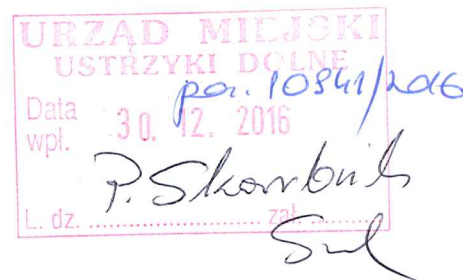 URZĄD MIEJSKI
USTRZYKI DOLNE
poz. 10941/2016
Data
wpł. 30. 12. 2016
P. Skarbnik
L. dz. .................... zał. ............